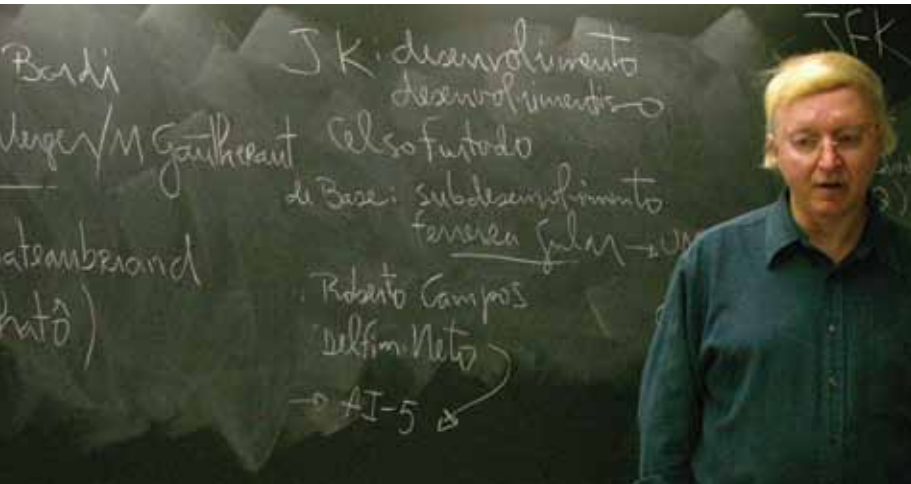 Bardi
Verger/M Gautheraut
ateaubriand
hatô)
JK: desenvolvimento
desenvolvimentis→o
Celso Furtado
de Base: subdesenvolvimento
Ferreira Gular → UN
Roberto Campos
Delfim Neto
→ AI-5
JFK